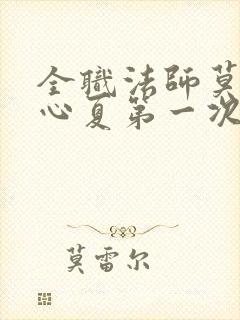 全职法师莫
心夏第一次
莫雷尔